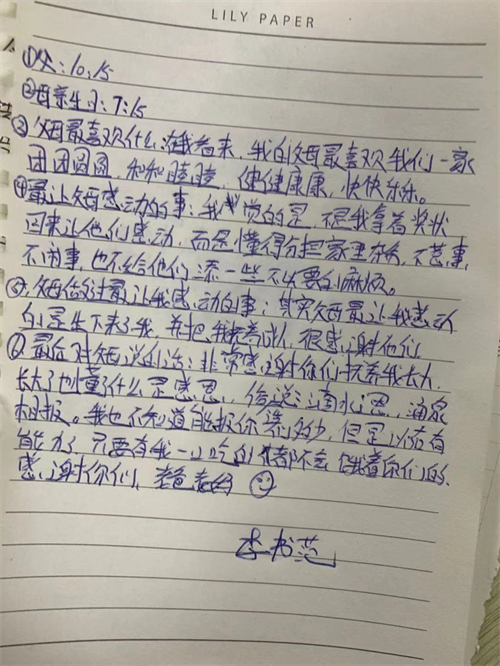 LILY PAPER
①父:10.15
②母亲生日:7.15
③父母最喜欢什么:在我看来,我的父母最喜欢我们一家
团团圆圆,和和睦睦,健健康康,快快乐乐。
④最让父母感动的事:我觉的是,不是我拿着奖状
回来让他们感动,而是懂得分担家里杂务,不惹事,
不闹事,也不给他们添一些不必要的麻烦。
⑤父母做过最让我感动的事:其实父母最让我感动
的是生下来了我,并把我抚养成人,很感谢他们
⑥最后对父母说的话:非常感谢你们抚养我长大,
长大了也懂了什么是感恩,俗说:滴水之恩,涌泉
相报。我也不知道能报你们多少,但是以后有
能力了,只要有我一口吃的,都不会饿着你们的、
感谢你们,爸爸妈妈
李书范